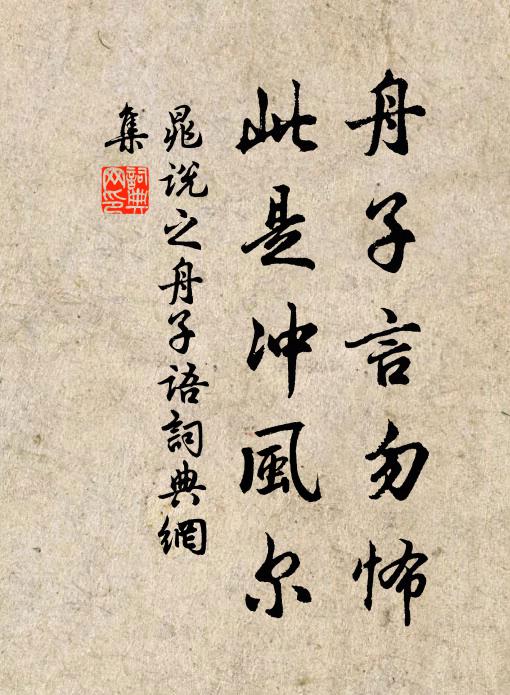 舟子言勿怖
此是冲風尔
晁说之舟子语詞典網
集
詞典
网印